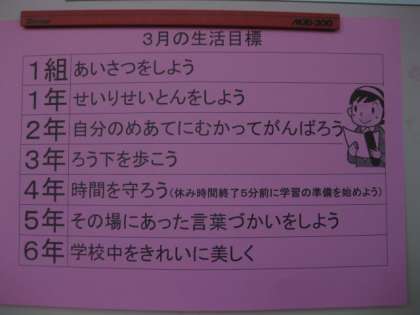 MAG-300
3月の生活目標
1組 あいさつをしよう
1年 せいりせいとんをしよう
2年 自分のめあてにむかってがんばろう
3年 ろう下を歩こう
4年 時間を守ろう(休み時間終了5分前に学習の準備を始めよう)
5年 その場にあった言葉づかいをしよう
6年 学校中をきれいに美しく